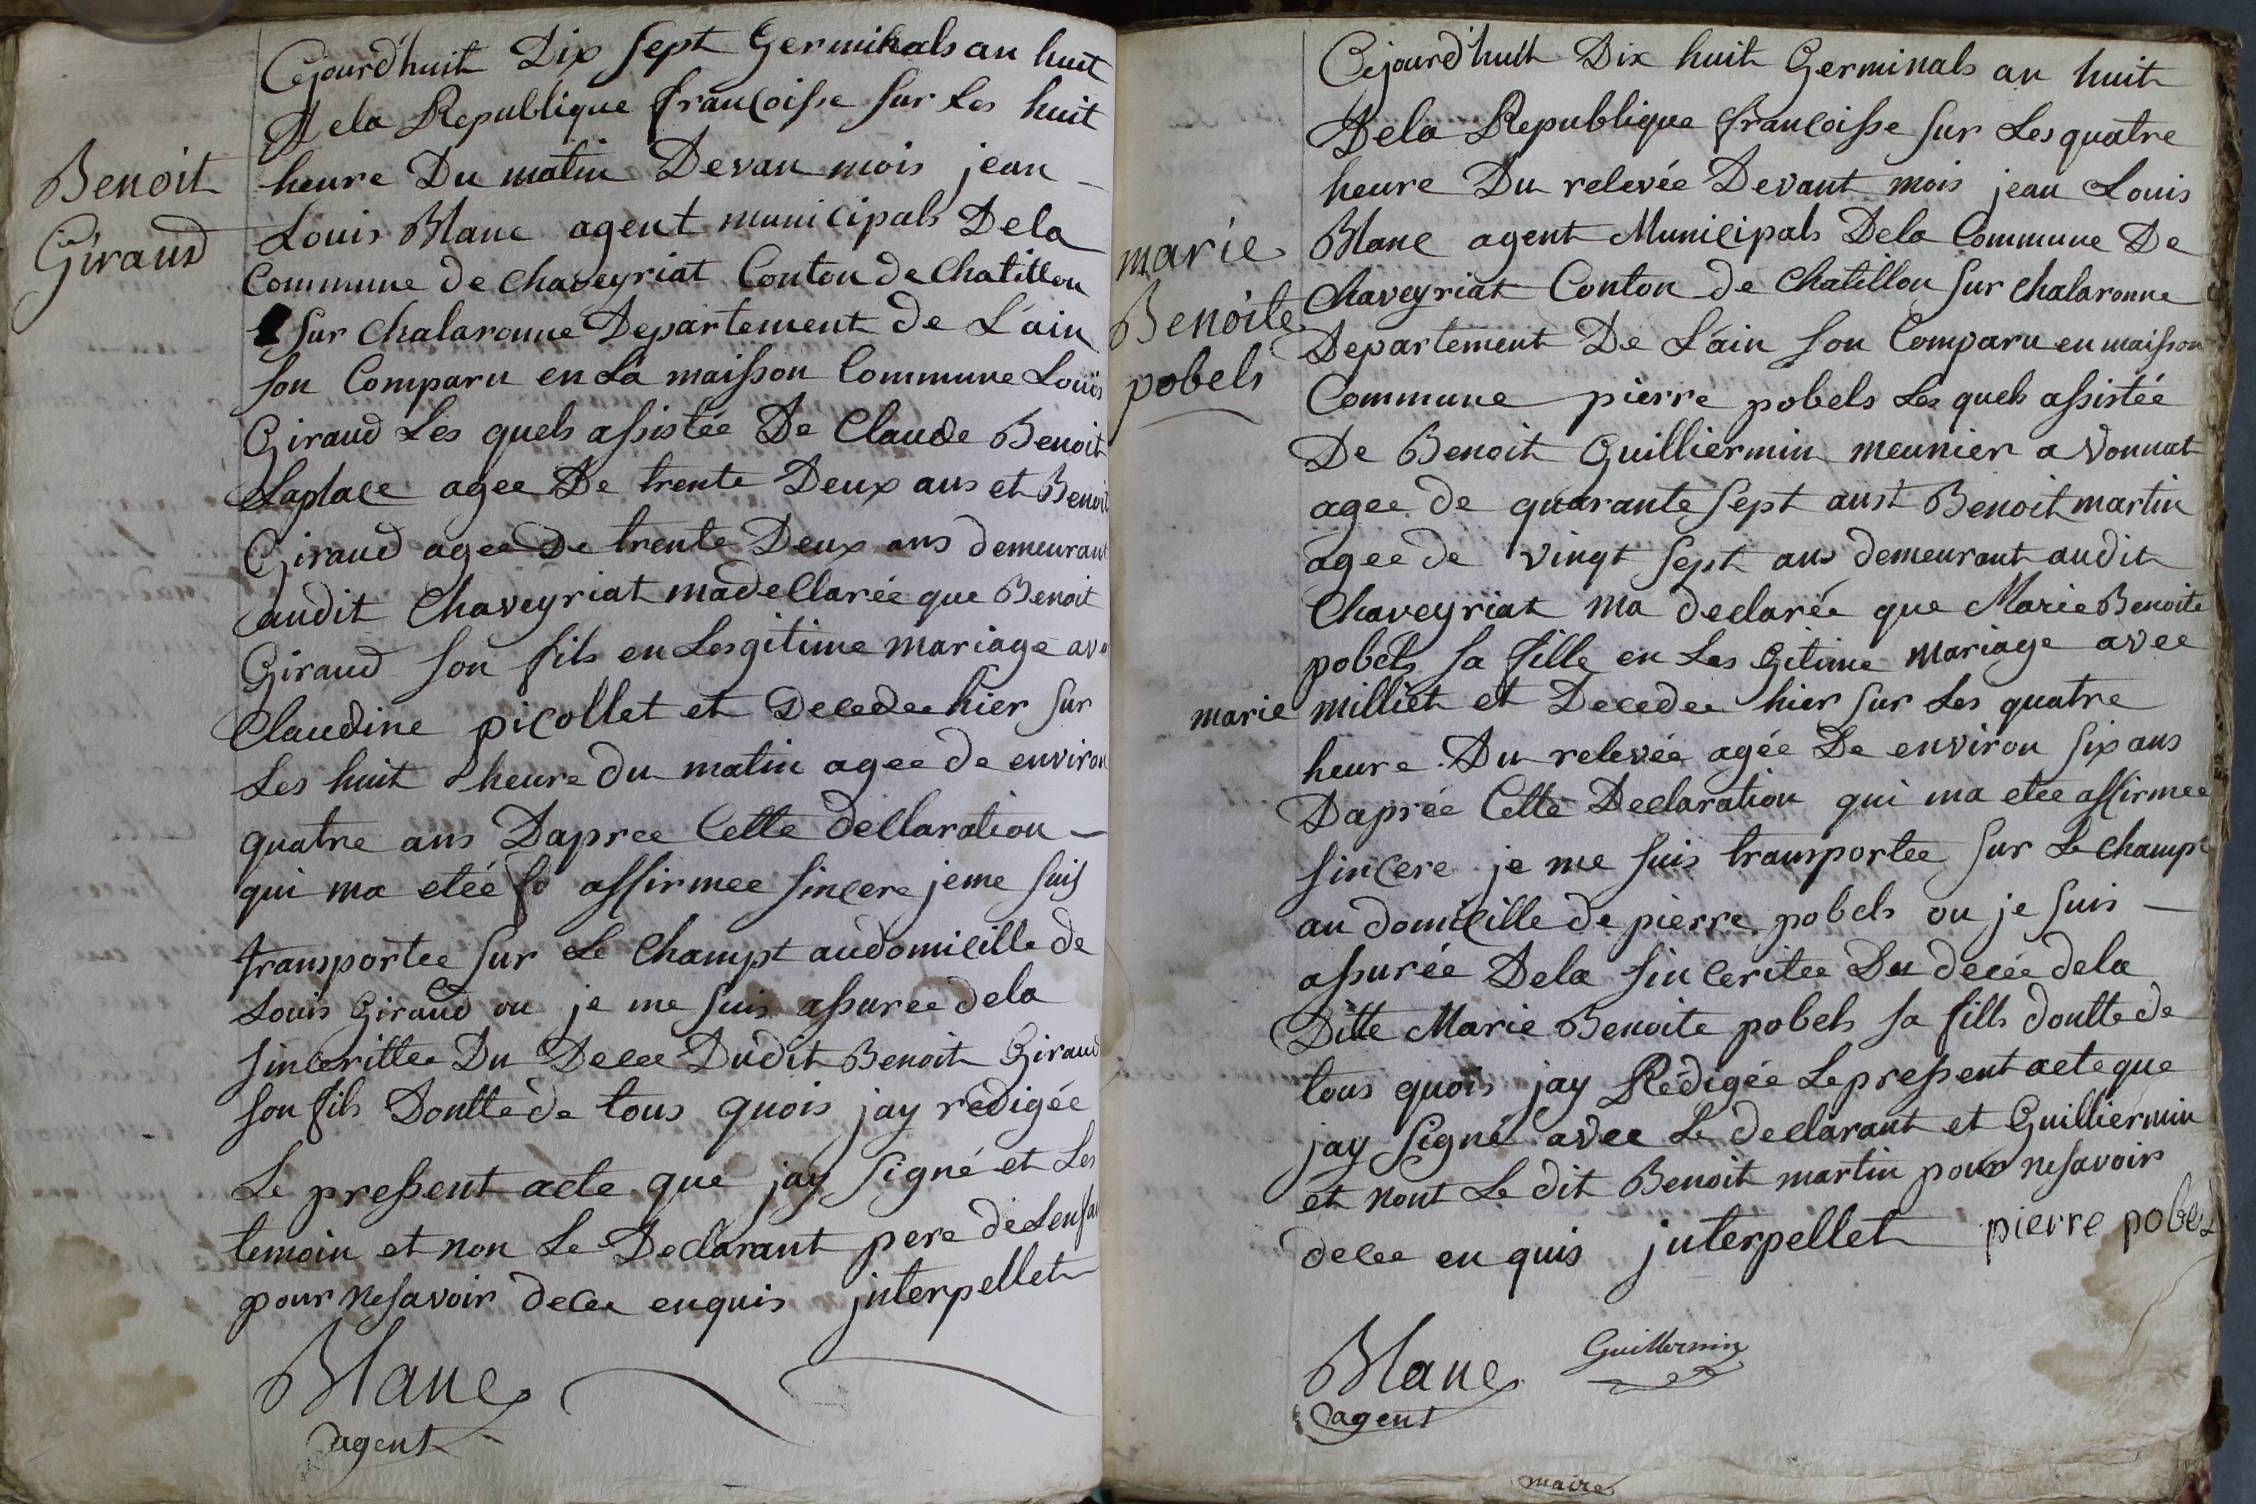 Benoit
Giraud
Cejourd'huit Dix sept Germinals an huit
Dela Republique francoisse sur les huit
heure Du matin Devan mois jean
Louis Blanc agent municipals Dela
Commune de chaveyriat Conton de Chatillon
sur chalaronne Departement de L'ain
son Comparu en La maisson Commune Louis
Giraud Les quels assistée De Claude Benoit
Laplace agee De trente Deux ans et Benoit
Giraud agee De trente Deux ans demeurant
audit Chaveyriat ma decllarée que Benoit
Giraud son fils en Lesgitime mariage avec
Claudine picollet et Decedee hier sur
Les huit heure du matin agee de environ
quatre ans Dapree Cette decllaration
qui ma etée affirmee sincere je me suis
transportee sur Le Champt au domicille de
Louis Giraud ou je me suis assuree dela
sincerittee Du Decee Dudit Benoit Giraud
son fils Doutte de tous quois jay redigée
Le pressent acte que jay signé et Les
temoin et non Le Declarant pere de Lenfan
pour ne savoir decee enquis jnterpellet
Blanc
agent
marie
Benoite
pobels
Cejourd'huit Dix huit Germinals an huit
Dela Republique francoisse sur Les quatre
heure Du relevée Devant mois jean Louis
Blanc agent Municipals Dela Commune De
Chaveyriat Conton de Chatillon sur chalaronne
Departement De L'ain son Comparu en maisson
Commune pierre pobels Les quels assistée
De Benoit Guilliermin meunier a Vonnat
agee de quarante sept ans t Benoit martin
agee de vingt sept ans demeurant audit
Chaveyriat ma declarée que Marie Benoite
pobels sa fille en Les Gitime mariage avec
marie milliet et Decedee hier sur Les quatre
heure Du relevée agée De environ six ans
Daprée Cette Declaration qui ma etee affirmee
sincere je me suis transportee sur Le champt
au domicille de pierre pobels ou je suis
assurée Dela sinceritee Du decée dela
Ditte Marie Benoite pobels sa fills doutte de
tous quois jay Rédigée Le pressent acte que
jay signé avec Le declarant et Guilliermin
et nont Le dit Benoit martin pour ne savoir
decee en quis jnterpellet pierre pobel
Blanc Guillermin
agent
maire